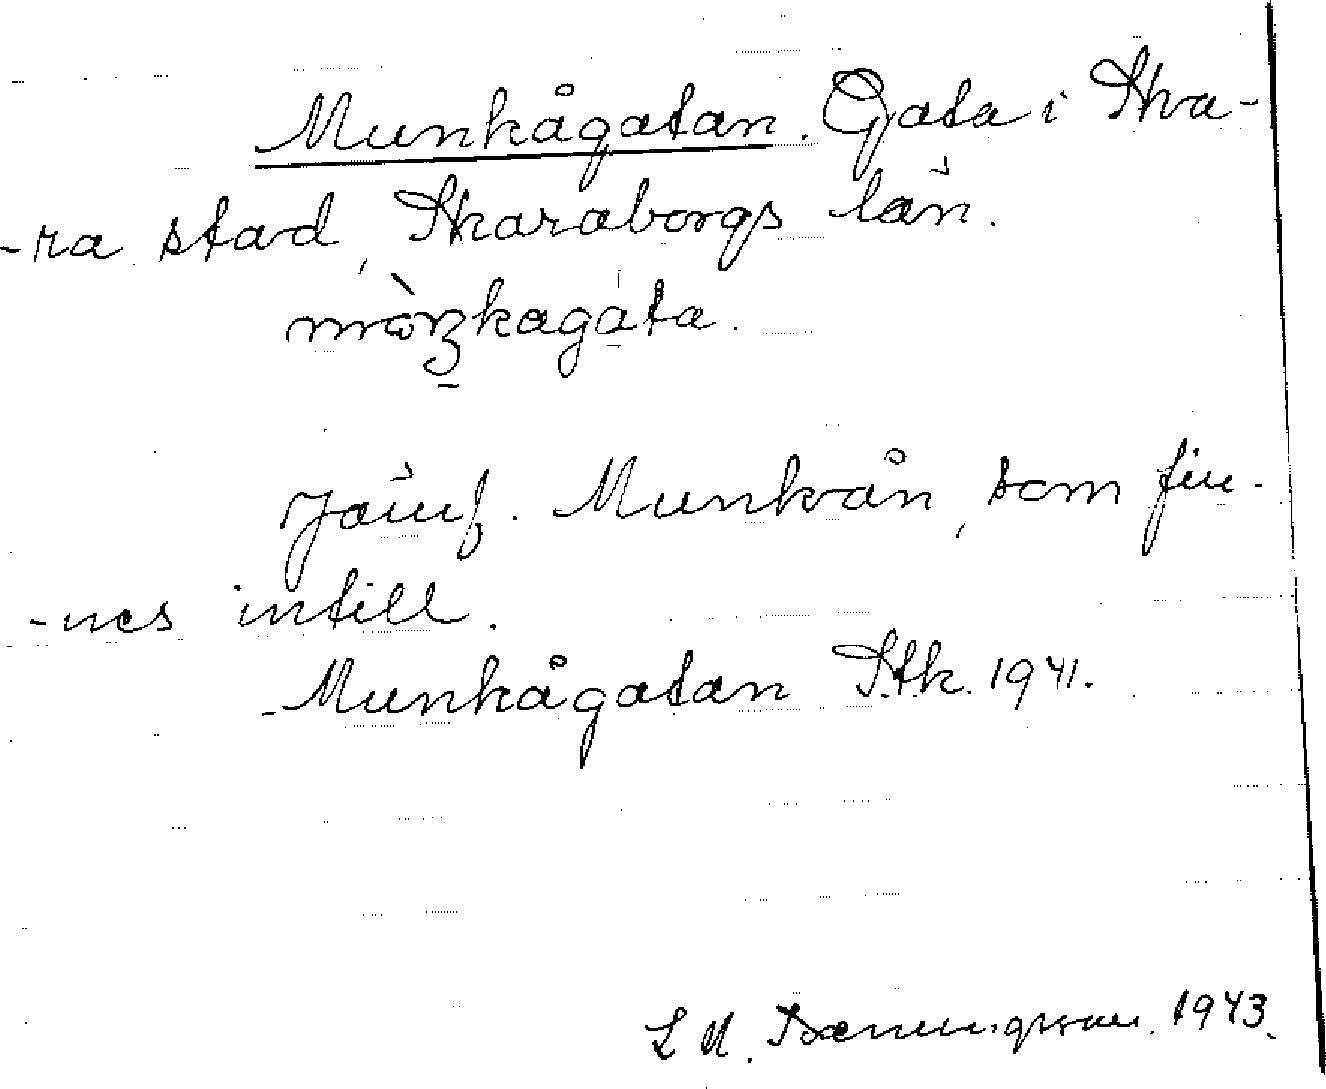 Munkågatan. Gata i Ska-
-ra stad, Skaraborgs län.
mòŋkagata.
Jämf. Munkån, som fin-
-nes intill.
Munkågatan Stk. 1941.
L M. 1943.